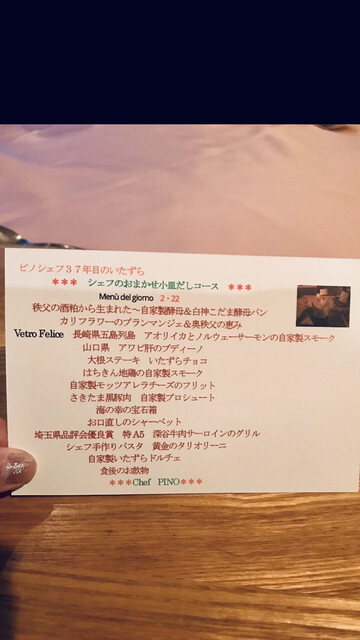 ピノシェフ37年目のいたずら
*** シェフのおまかせ小皿だしコース ***
Menù del giorno 2・22
秩父の酒粕から生まれた～自家製酵母&白神こだま酵母パン
カリフラワーのブランマンジェ&奥秩父の恵み
Vetro Felice 長崎県五島列島 アオリイカとノルウェーサーモンの自家製スモーク
山口県 アワビ肝のブディーノ
大根ステーキ いたずらチョコ
はちきん地鶏の自家製スモーク
自家製モッツアレラチーズのフリット
さきたま黒豚肉 自家製プロシュート
海の幸の宝石箱
お口直しのシャーベット
埼玉県品評会優良賞 特A5 深谷牛肉サーロインのグリル
シェフ手作りパスタ 黄金のタリオリーニ
自家製いたずらドルチェ
食後のお飲物
***Chef PINO***